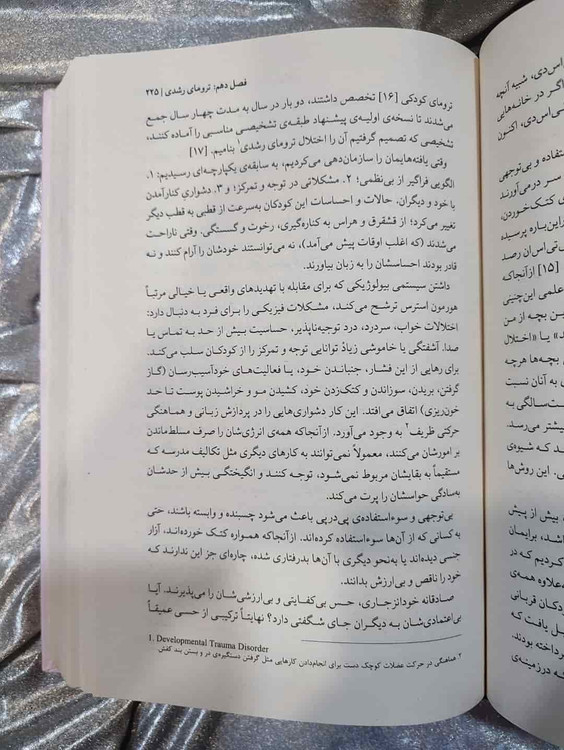 فصل دهم: ترومای رشدی | ۲۲۵
ترومای کودکی [۱۶] تخصص داشتند، دو بار در سال به مدت چهار سال جمع
می‌شدند تا نسخه‌ی اولیه‌ی پیشنهاد طبقه‌ی تشخیصی مناسبی را آماده کنند،
تشخیصی که تصمیم گرفتیم آن را اختلال ترومای رشدی¹ بنامیم. [۱۷]
وقتی یافته‌هایمان را سازمان‌دهی می‌کردیم، به سابقه‌ی یکپارچه‌ای رسیدیم: ۱.
الگویی فراگیر از بی‌نظمی؛ ۲. مشکلاتی در توجه و تمرکز؛ و ۳. دشواریِ کنارآمدن
با خود و دیگران. حالات و احساسات این کودکان به‌سرعت از قطبی به قطب دیگر
تغییر می‌کرد؛ از قشقرق و هراس به کناره‌گیری، رخوت و گسستگی. وقتی ناراحت
می‌شدند (که اغلب اوقات پیش می‌آمد)، نه می‌توانستند خودشان را آرام کنند و نه
قادر بودند احساسشان را به زبان بیاورند.
داشتن سیستمی بیولوژیکی که برای مقابله با تهدیدهای واقعی یا خیالی مرتباً
هورمون استرس ترشح می‌کند، مشکلات فیزیکی را برای فرد به دنبال دارد:
اختلالات خواب، سردرد، درد توجیه‌ناپذیر، حساسیت بیش از حد به تماس یا
صدا. آشفتگی یا خاموشی زیادْ توانایی توجه و تمرکز را از کودکان سلب می‌کند.
برای رهایی از این فشار، جنباندن خود، یا فعالیت‌های خودآسیب‌رسان (گاز
گرفتن، بریدن، سوزاندن و کتک‌زدن خود، کشیدن مو و خراشیدن پوست تا حد
خون‌ریزی) اتفاق می‌افتد. این کار دشواری‌هایی را در پردازش زبانی و هماهنگی
حرکتی ظریف² به وجود می‌آورد. ازآنجاکه همه‌ی انرژی‌شان را صرف مسلط‌ماندن
بر امورشان می‌کنند، معمولاً نمی‌توانند به کارهای دیگری مثل تکالیف مدرسه که
مستقیماً به بقایشان مربوط نمی‌شود، توجه کنند و انگیختگی بیش از حدشان
به‌سادگی حواسشان را پرت می‌کند.
بی‌توجهی و سوءاستفاده‌ی پی‌درپی باعث می‌شود چسبنده و وابسته باشند، حتی
به کسانی که از آن‌ها سوءاستفاده کرده‌اند. ازآنجاکه همواره کتک خورده‌اند، آزار
جنسی دیده‌اند یا به‌نحو دیگری با آن‌ها بدرفتاری شده، چاره‌ای جز این ندارند که
خود را ناقص و بی‌ارزش بدانند.
صادقانه خودانزجاری، حس بی‌کفایتی و بی‌ارزشی‌شان را می‌پذیرند. آیا
بی‌اعتمادی‌شان به دیگران جای شگفتی دارد؟ نهایتاً ترکیبی از حسی عمیقاً
1. Developmental Trauma Disorder
۲ هماهنگی در حرکت عضلات کوچک دست برای انجام‌دادن کارهایی مثل گرفتن دستگیره‌ی در و بستن بند کفش